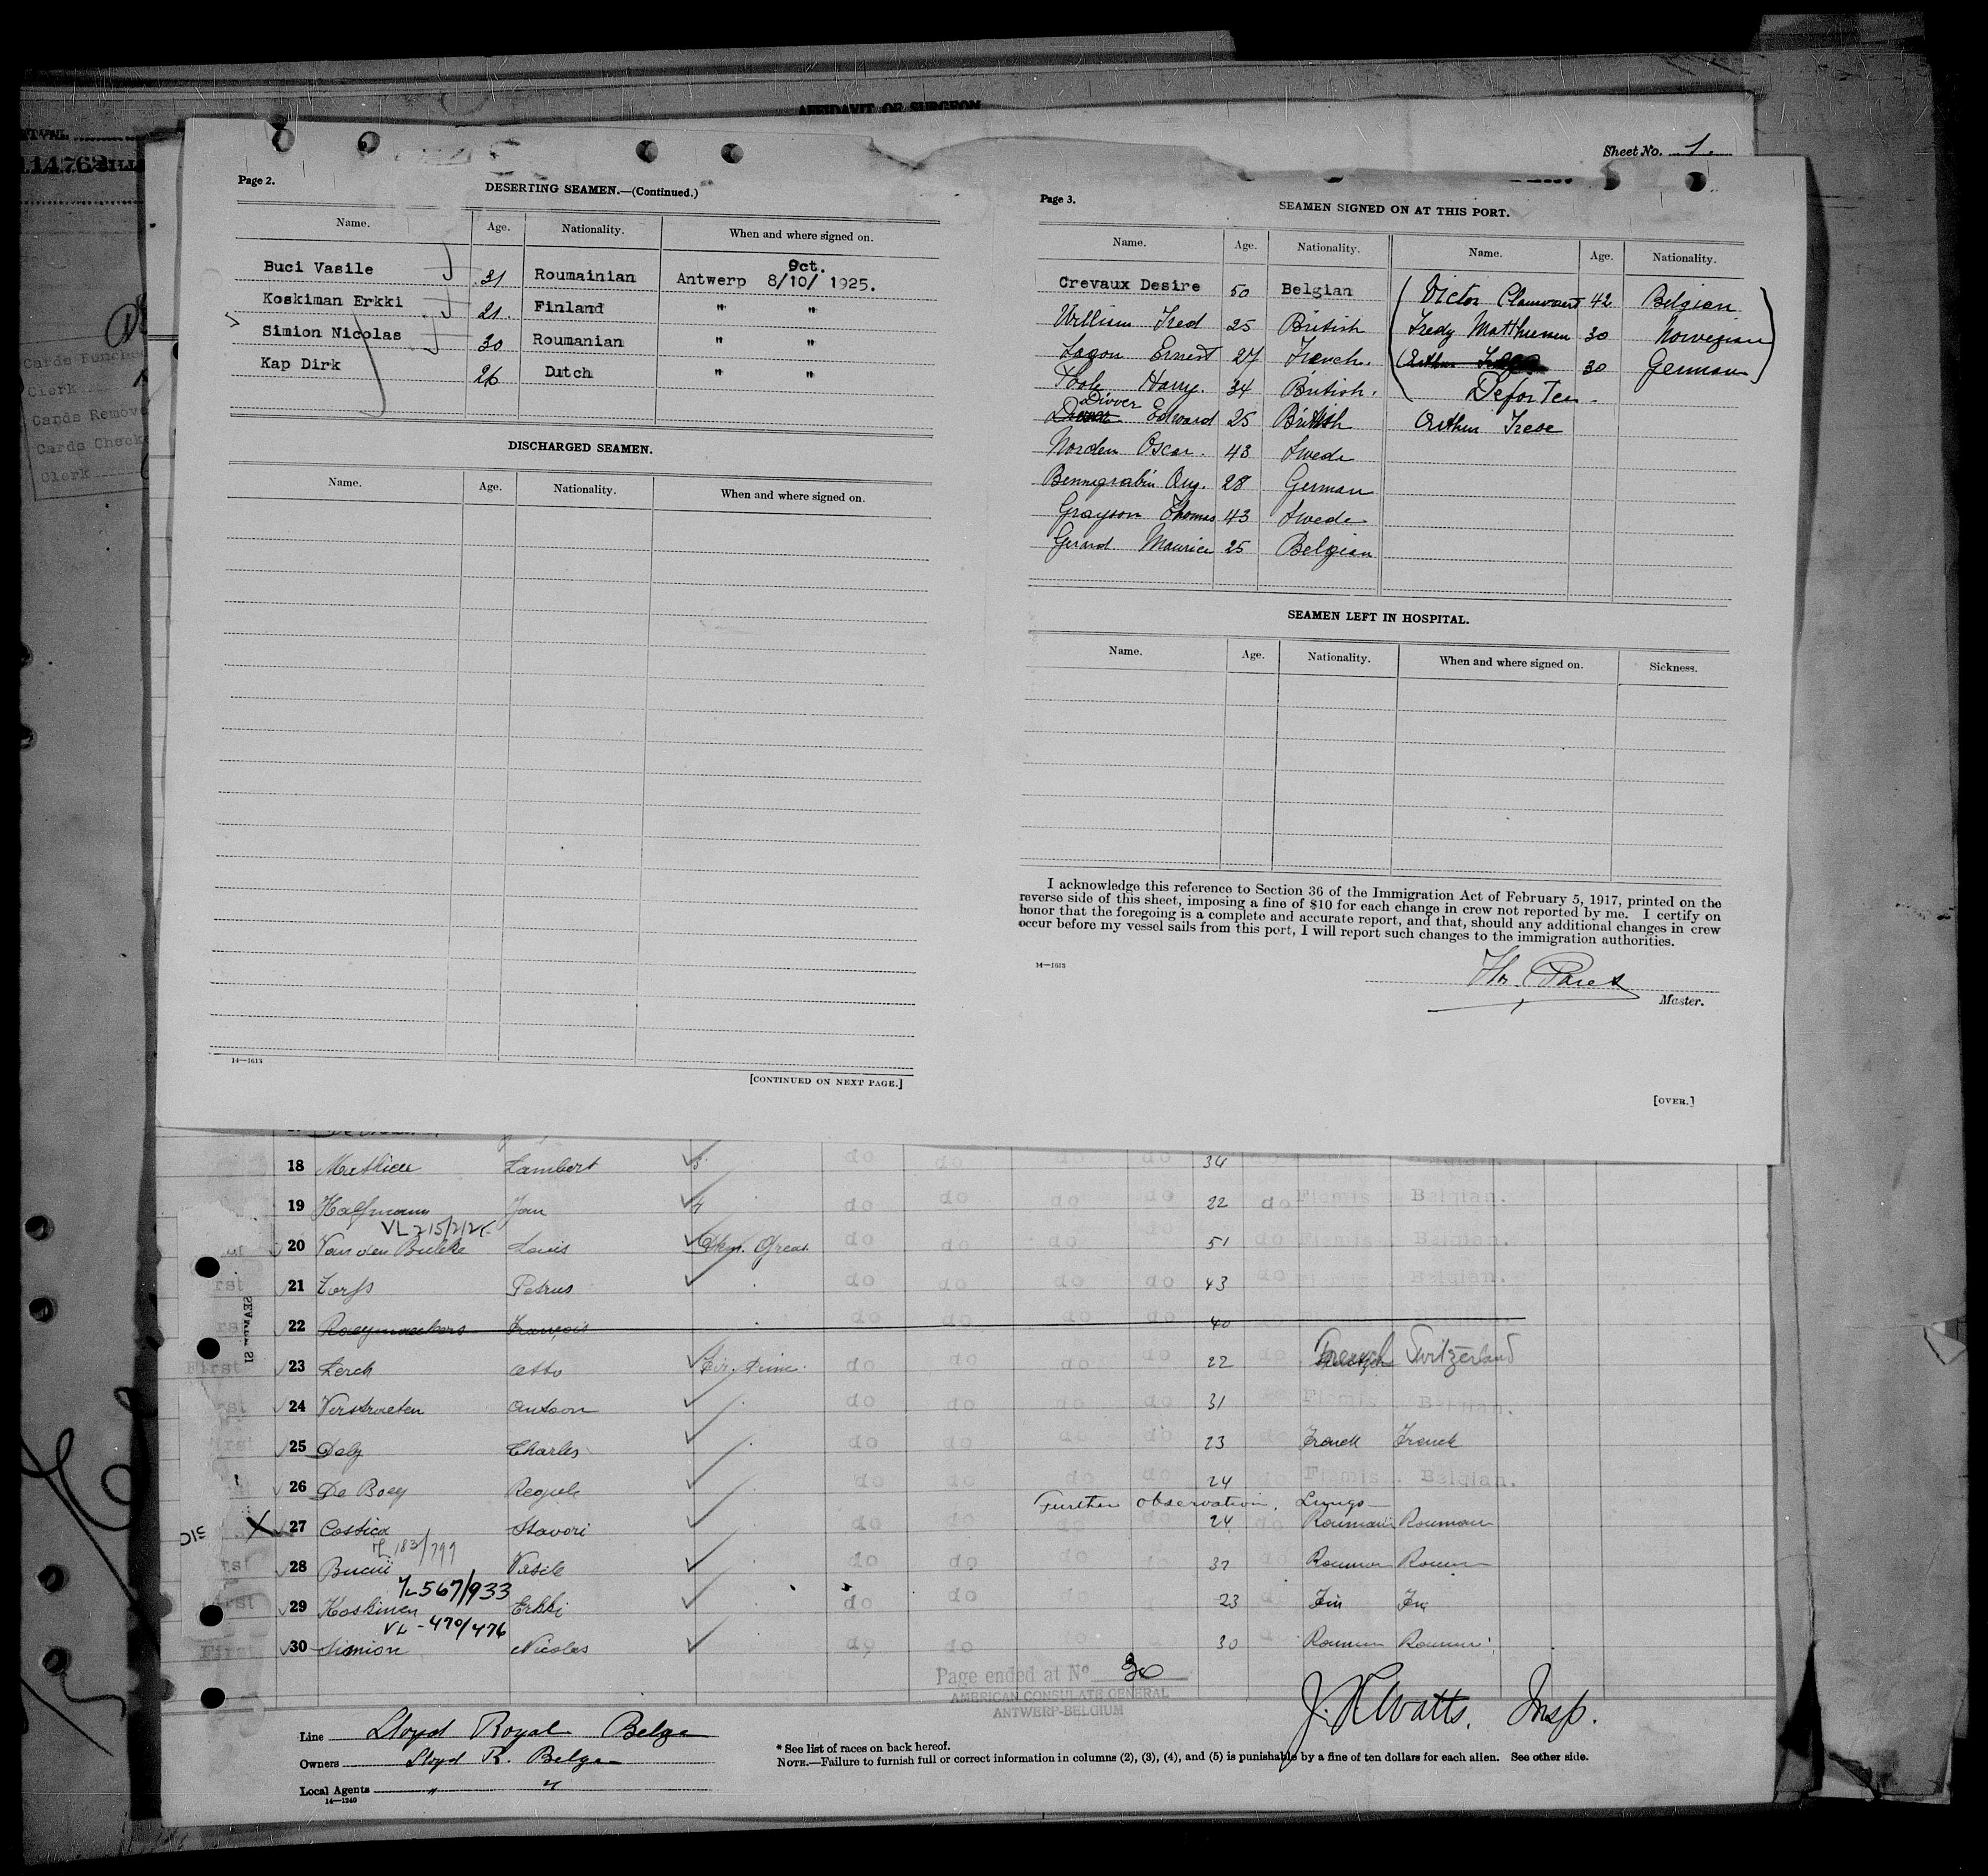 AFFIDAVIT OF SURGEON
114762
Sheet No. 1
Page 2.
DESERTING SEAMEN.—(Continued.)
Name. Age. Nationality. When and where signed on.
Buci Vasile 31 Roumainian Antwerp 8/10/ 1925.
Oct.
Koskiman Erkki 21. Finland " "
Simion Nicolas 30 Roumanian " "
Kap Dirk 26 Dutch " "
DISCHARGED SEAMEN.
Name. Age. Nationality. When and where signed on.
14—1613
[CONTINUED ON NEXT PAGE.]
Page 3.
SEAMEN SIGNED ON AT THIS PORT.
Name. Age. Nationality. Name. Age. Nationality.
Crevaux Desire 50 Belgian Victor 42 Belgian
William Fred 25 British Fredy 30 Norwegian
Ernest 27 French. Arthur 30 German
Harry. 34 British.
Divver Edward 25 British Arthur
Norden Oscar. 43 Swede
Aug. 28 German
Grayson Thomas 43 Swede
Gerard Maurice 25 Belgian
SEAMEN LEFT IN HOSPITAL.
Name. Age. Nationality. When and where signed on. Sickness.
I acknowledge this reference to Section 36 of the Immigration Act of February 5, 1917, printed on the
reverse side of this sheet, imposing a fine of $10 for each change in crew not reported by me. I certify on
honor that the foregoing is a complete and accurate report, and that, should any additional changes in crew
occur before my vessel sails from this port, I will report such changes to the immigration authorities.
14—1613
Master.
[OVER.]
Cards Punched
Clerk
Cards Removed
Cards Check
Clerk
18 Mathieu Lambert do do do do 34 Belgian.
19 Halfmann Jan do do do do 22 do Flemis Belgian.
20 Van den Bulcke Louis do do do do 51 do Flemis Belgian.
21 Torfs Petrus do do do do 43 do Flemis Belgian.
22 Raeymaekers François do do do do 40
First 23 Lerch Otto do do do do 22 do French Switzerland
24 Verstraeten Antoon do do do do 31 Flemis Belgian.
25 Charles do do do do 23 French French
26 De Boey do do do do 24 Flemis Belgian.
Further observation. Lungs
27 Costica Stavori do do do do 24 do
183/799
28 Vasile do do do
567/933
29 Koskinen Erkki do do 23 Fin Fin
VL - 470/476
First 30 Simion Nicolas do do 30
Page ended at No 30
AMERICAN CONSULATE GENERAL
ANTWERP-BELGIUM
J. R. Watts. Insp.
Line Lloyd Royal Belge
Owners Lloyd R. Belge
Local Agents " "
14—1240
* See list of races on back hereof.
NOTE.—Failure to furnish full or correct information in columns (2), (3), (4), and (5) is punishable by a fine of ten dollars for each alien. See other side.